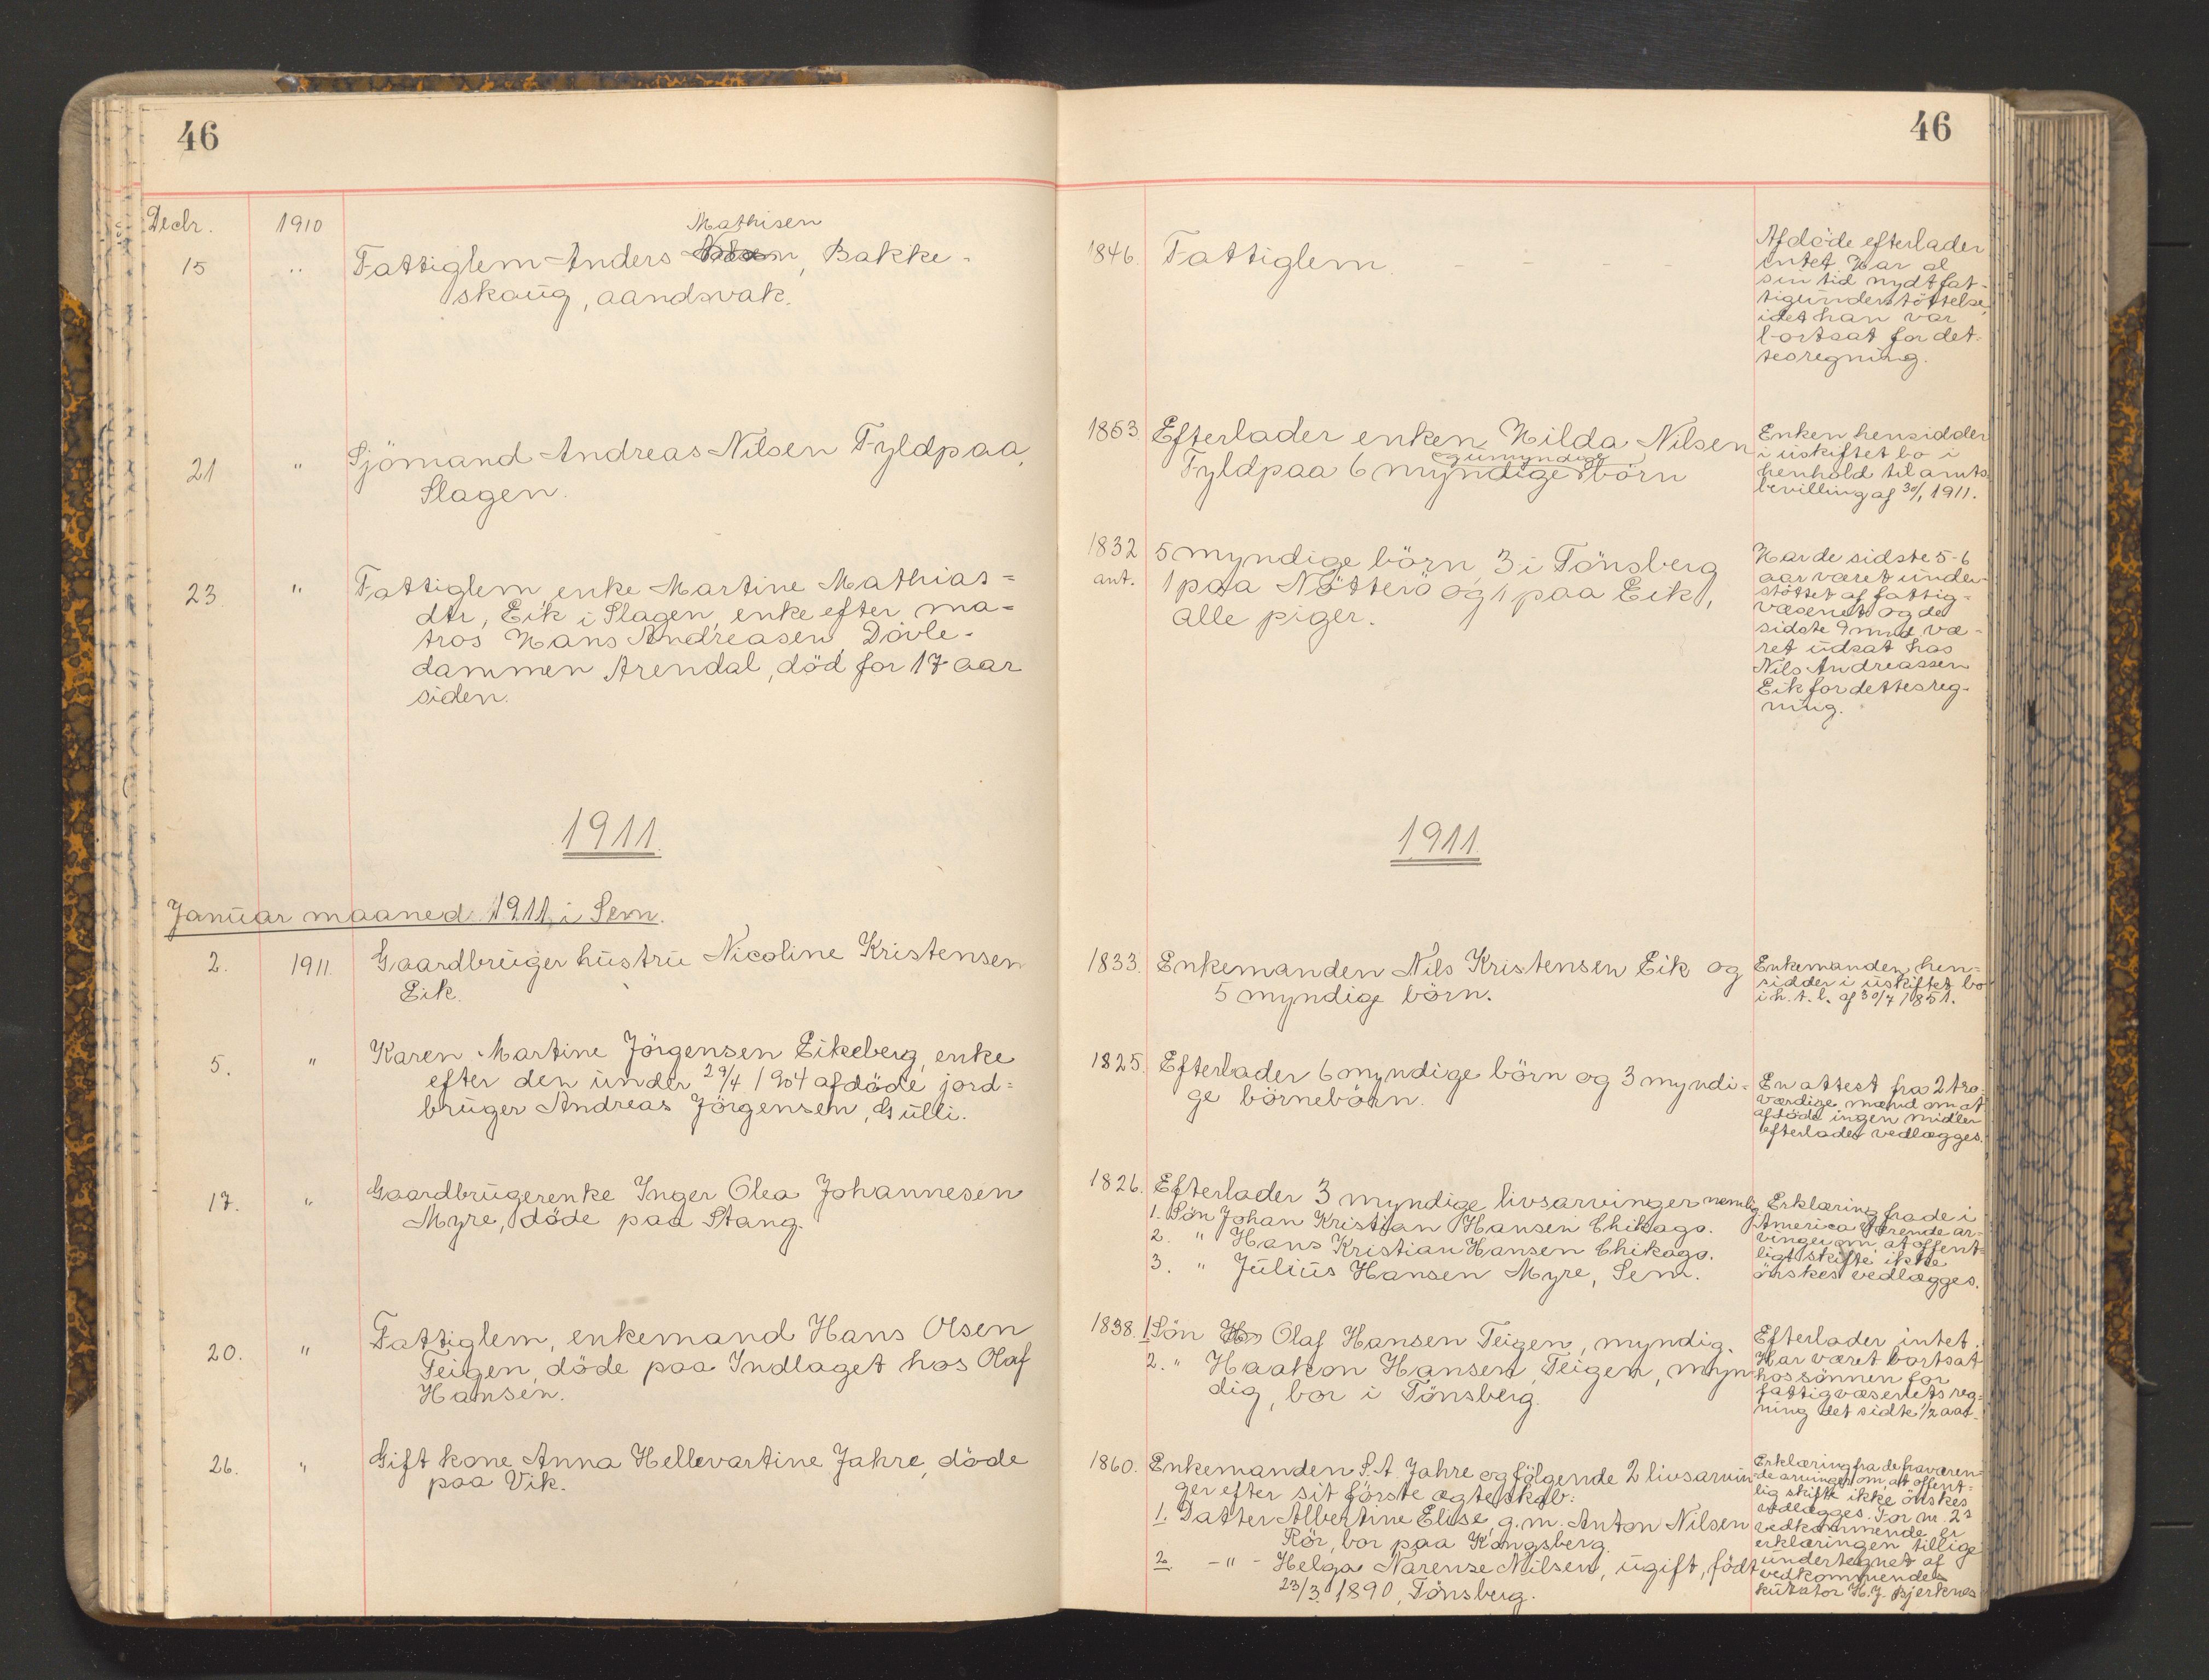 46
Decbr. 1910
15 " Fattiglem Anders Mathisen, Bakke-
skoug, aandsvak.
21 " Sjömand Andreas Nilsen Fyldpaa,
Slagen.
23 " Fattiglem enke Martine Mathias=
dtr, Eik i Slagen, enke efter ma=
tros Hans Andreasen, Dövle-
dammen Arendal, död for 17 aar
siden.
1911.
Januar maaned 1911 i Sem.
2. 1911. Gaardbruger hustru Nicoline Kristensen
Eik.
5. " Karen Martine Jörgensen Eikeberg, enke
efter den under 29/4 1904 afdöde jord=
bruger Andreas Jörgensen, Gulli.
17. " Gaardbrugerenke Inger Olea Johannesen
Myre, döde paa Stang.
20. " Fattiglem, enkemand Hans Olsen
Teigen, döde paa Indlaget hos Olaf
Hansen.
26. " Gift kone Anna Hellevartine Jahre, döde
paa Vik.
46
1846. Fattiglem. - - - -
Afdöde efterlader
intet. Har al
sin tid nydt fat-
tigunderstöttelse,
idet han var
bortsat for det-
tes regning.
1853. Efterlader enken Hilda Nilsen
Fyldpaa 6 myndige og umyndige börn
Enken hensidder
i uskiftet bo i
henhold til amts
bevilling af 30/1 1911.
1832 5 myndige börn 3 i Tönsberg
ant. 1 paa Nötterö og 1 paa Eik,
alle piger.
Har de sidste 5-6
aar været under-
stöttet af fattig=
væsenet og de
sidste 9 mnd væ-
ret udsat hos
Nils Andreassen
Eik for dettes reg-
ning.
1911.
1833. Enkemanden Nils Kristensen Eik og
5 myndige börn.
Enkemanden hen=
sidder i uskiftet bo
i h. t. l. af 30/7 1851.
1825. Efterlader 6 myndige börn og 3 myndi=
ge börnebörn.
En attest fra 2 tro-
værdige mænd om at
afdöde ingen midler
efterlader vedlægges.
1826. Efterlader 3 myndige livsarvinger nemlig
1. Sön Johan Kristian Hansen Chikago.
2. " Hans Kristian Hansen Chikago.
3. " Julius Hansen Myre, Sem.
Erklæring fra de i
America værende ar-
vinger om, at offent=
ligt skifte ikke
önskes vedlægges.
1838. 1. Sön Olaf Hansen Teigen, myndig.
2. " Haakon Hansen Teigen, myn-
dig, bor i Tönsberg.
Efterlader intet.
Har været bortsat
hos sönnen for
fattigvæsenets reg=
ning det sidte 1/2 aar.
1860. Enkemanden S. A. Jahre og fölgende 2 livsarvin
ger efter sit förste ægteskab:
1. Datter Albertine Elise, g. m. Anton Nilsen
Rör, bor paa Kongsberg.
2. -"- Helga Narense Nilsen, ugift, födt
23/3 1890, Tönsberg.
Erklæring fra de fraværen
de arvinger om, at offent=
lig skifte ikke önskes
vedlægges. For nr. 2s
vedkommende er
erklæringen tillige
undertegnet af
vedkommendes
kurator H. J. Bjerknes